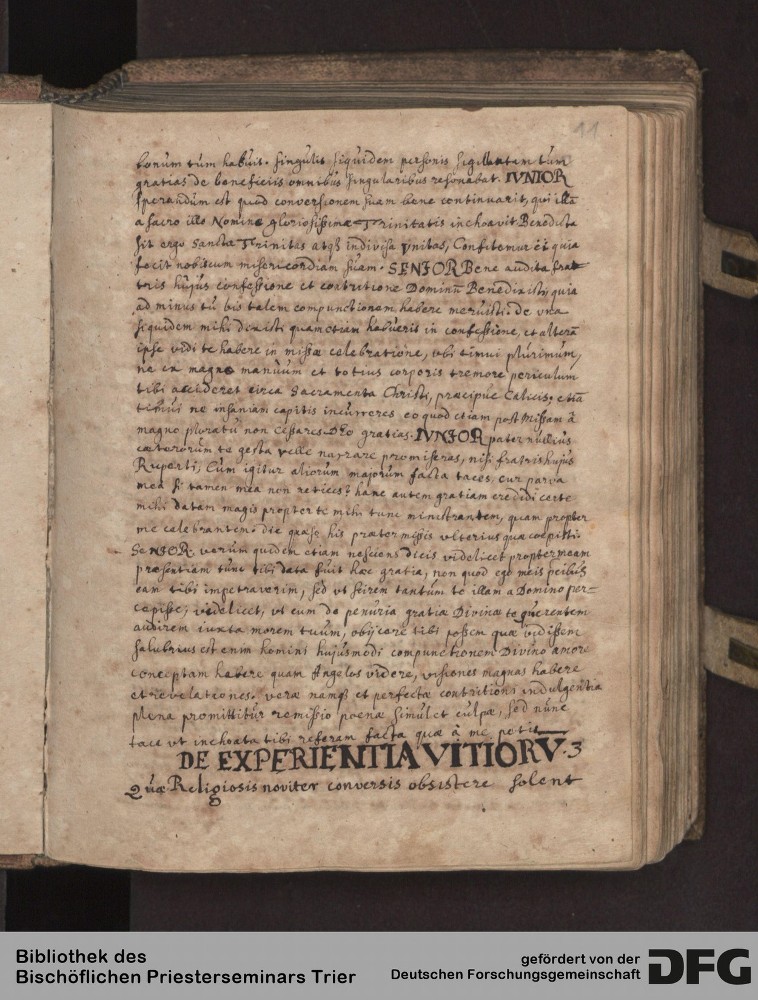 11
bonum tum habuit. singulis siquidem personis sigillatam tum
gratias de beneficiis omnibus singularibus resonabat. IVNIOR
sperandum est quod conversionem suam bene continuarit, qui illā
a sacro illo Nomine gloriosissimæ Trinitatis inchoavit Benedicta
sit ergo sancta Trinitas atqȝ indivisa Vnitas, Confitemur ei quia
fecit nobiscum misericordiam suam. SENIOR Bene audita frat
tris hujus confessione et contritione Dominū Benedixisti, quia
ad minus tu bis talem compunctionem habere meruisti. de una
siquidem mihi dixisti quam etiam habueris in confessione, et alterā
ipse vidi te habere in missæ celebratione, vbi timui plurimum,
ne ex magno manuum et totius corporis tremore periculum
tibi accideret circa Sacramenta Christi, præcipue Calicis. etiā
timui ne insaniam capitis incurreres eo quod etiam post Missam à
magno ploratu non cessares. Deo gratias. IVNIOR pater nullius
cæterorum te gesta velle narrare promiseras, nisi fratris hujus
Ruperti, Cum igitur aliorum majorum facta taces, cur parva
mea si tamen mea non retices? hanc autem gratiam credidi certe
mihi datam magis propter te mihi tunc ministrantem, quam propter
me celebrantem. dic quæso his prætermissis vlterius quæ cœpisti.
SENIOR. verum quidem etiam nesciens dicis videlicet propter meam
præsentiam tunc tibi data fuit hæc gratia, non quod ego meis p̄cibus
eam tibi impetraverim, sed vt scirem tantum te illam a Domino per=
cepisse, videlicet, vt cum de penuria gratiæ Divinæ te querentem
audirem iuxta morem tuum, obijcere tibi possem quæ vidissem
salubrius est enim homini hujusmodi compunctionem Divino amore
conceptam habere quam Angelos videre, visiones magnas habere
et revelationes. veræ namqȝ et perfectæ contritioni indulgentia
plena promittitur remissio poenæ simul et culpæ, sed nunc
tace vt inchoata tibi referam facta quæ à me petis
DE EXPERIENTIA VITIORV̄. 3
Quæ Religiosis noviter conversis obsistere solent
Bibliothek des
Bischöflichen Priesterseminars Trier
gefördert von der
Deutschen Forschungsgemeinschaft
DFG